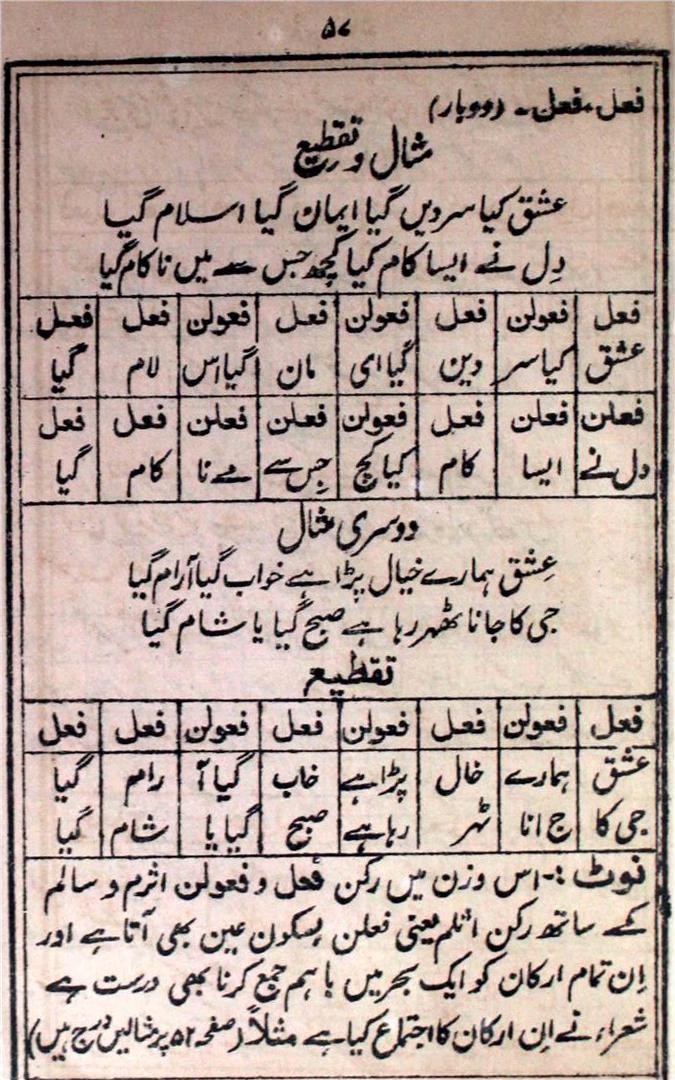 ۵۷
فعل، فعلن۔ (دوبار)
مثال و تقطیع
عشق کیا سر دیں گیا ایمان گیا اسلام گیا
دِل نے ایسا کام کیا کچھ جس سے میں ناکام گیا
فعل فعولن فعل فعولن فعل فعولن فعل فعل
عشق کیا سر دین گیا ای مان گیا اس لام گیا
فعلن فعلن فعل فعولن فعلن فعلن فعل فعل
دل نے ایسا کام کیا کچ جِس سے مے نا کام گیا
دوسری مثال
عِشق ہمارے خیال پڑا ہے خواب گیا آرام گیا
جی کا جانا ٹھہر رہا ہے صبح گیا یا شام گیا
تقطیع
فعل فعولن فعل فعولن فعل فعولن فعل فعل
عشق ہمارے خال پڑا ہے خاب گیا آ رام گیا
جی کا ج انا ٹہر رہا ہے صبح گیا یا شام گیا
نوٹ :۔ اس وزن میں رکن فُعل و فعولن اثرم و سالم
کے ساتھ رکن اثلم یعنی فعلن بسکون عین بھی آتا ہے اور
اِن تمام ارکان کو ایک بحر میں باہم جمع کرنا بھی درست ہے
شعراء نے اِن ارکان کا اجتماع کیا ہے مثلاً (صفحہ ۵۲ پر مثالیں درج ہیں)